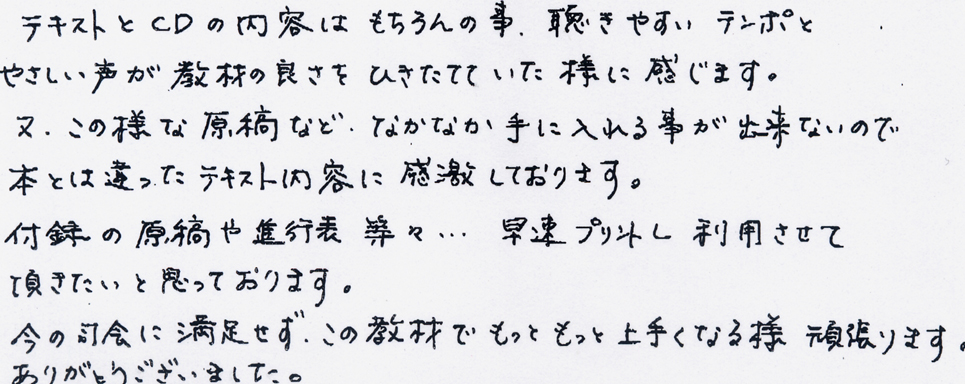 テキストとCDの内容はもちろんの事、聴きやすいテンポと
やさしい声が教材の良さをひきたてていた様に感じます。
又、この様な原稿など、なかなか手に入れる事が出来ないので
本とは違ったテキスト内容に感激しております。
付録の原稿や進行表等々… 早速プリントし利用させて
頂きたいと思っております。
今の司会に満足せず、この教材でもっともっと上手くなる様頑張ります。
ありがとうございました。